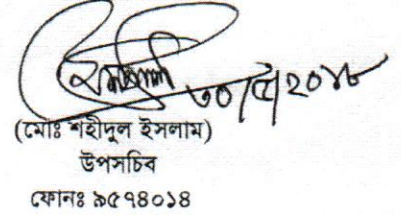 ৩০/৫/২০১৮
(মোঃ শহীদুল ইসলাম)
উপসচিব
ফোনঃ ৯৫৭৪০১৪